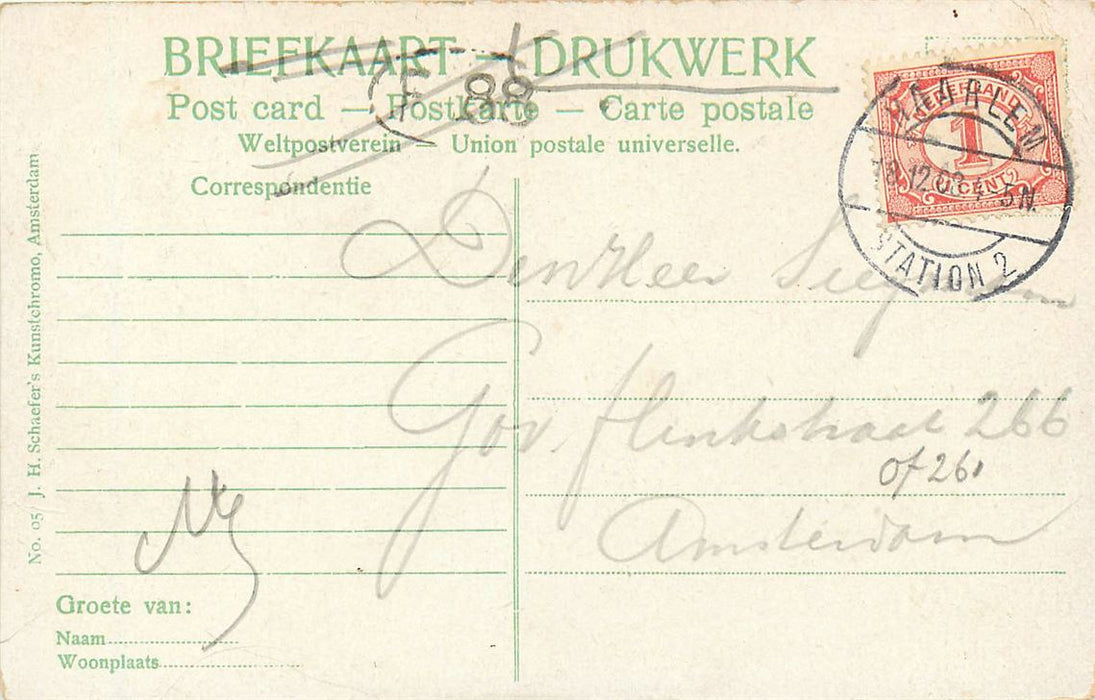 BRIEFKAART — DRUKWERK
Post card — Postkarte — Carte postale
Weltpostverein — Union postale universelle.
Correspondentie
F 88
HAARLEM
12.08 4-5N
STATION 2
NEDERLAND
1
CENT
Den Heer
Gov. Flinkstraat 266
of 261
Amsterdam
Groete van:
Naam
Woonplaats
No. 05 J. H. Schaefer's Kunstchromo, Amsterdam